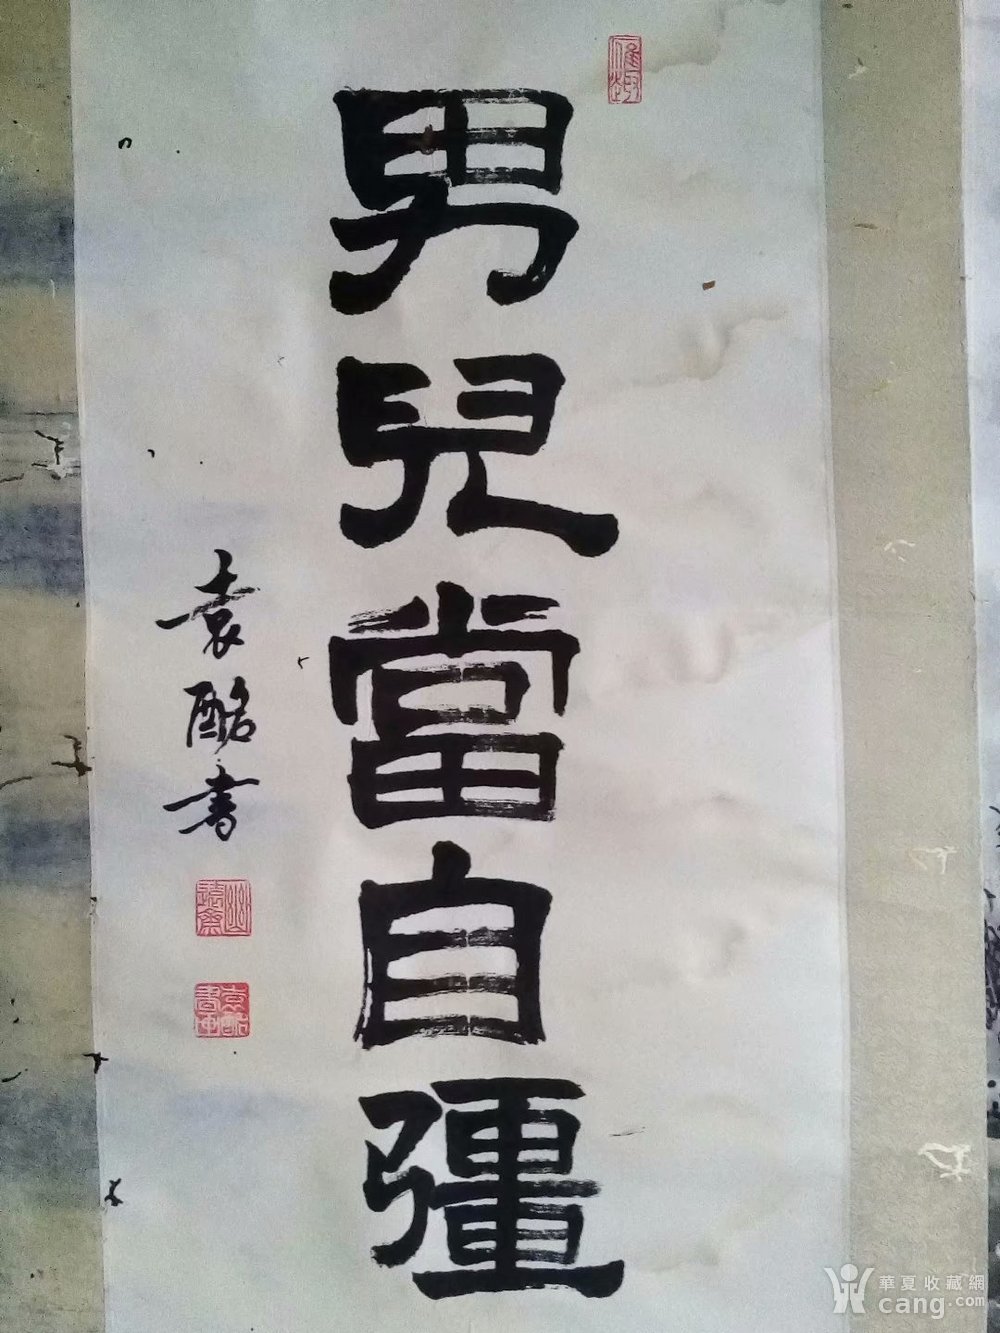 男兒當自彊
袁酩書
華夏收藏網
cang.com